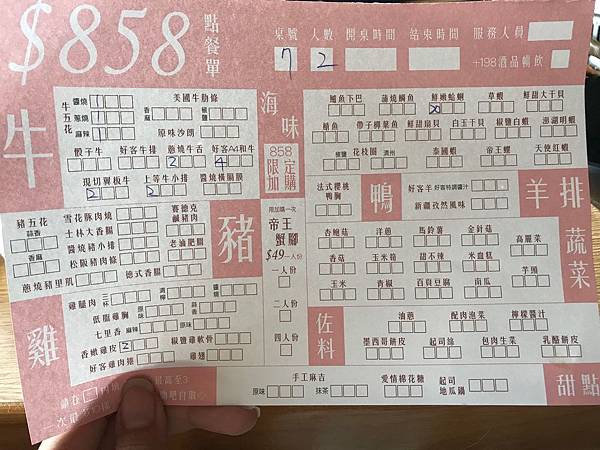 $858 點餐單
桌號 人數 開桌時間 結束時間 服務人員
7 2
+198酒品暢飲
牛
牛五花 醬燒 1
蔥燒 1
麻辣 1
美國牛肋條
香麻 椒鹽
原味沙朗
骰子牛 好客牛排 蔥燒牛舌 好客A4和牛
2 4
現切翼板牛 上等牛小排 醬燒橫膈膜
2 2
海味
鯛魚下巴 蒲燒鯛魚 鮮嫩蛤蜊 草蝦 鮮甜大干貝
鯖魚 帶子柳葉魚 鮮甜扇貝 白玉干貝 椒鹽白蝦 澎湖明蝦
椒鹽 花枝圈 泰國蝦 帝王螺 天使紅蝦
858限定加購
限加購一次
帝王蟹腳
$49 一人份
一人份
二人份
四人份
鴨
法式櫻桃鴨胸
羊排
好客羊 好客特調醬汁
新疆孜然風味
豬
豬五花 蒜香
香麻
雪花豚肉燒
士林大香腸
醬燒豬小排
松阪豬肉條
賽德克鹹豬肉
老滷肥腸
蔥燒豬里肌 德式香腸
蔬菜
杏鮑菇 洋蔥 馬鈴薯 金針菇 高麗菜
香菇 玉米筍 甜不辣 米血糕
玉米 青椒 百頁豆腐 南瓜 芋頭
雞
雞腿肉 三杯 清檸 醬燒
低脂雞胸 原味 蒜香
七里香 麻辣 原味
香嫩雞皮 2 椒鹽雞軟骨
好客雞肉雞 雞翅
佐料
油蔥 配肉泡菜 檸檬醬汁
墨西哥餅皮 起司絲 包肉生菜 乳酪餅皮
甜點
手工麻吉
原味 抹茶
愛情棉花糖 起司地瓜鍋
請在
最高至3